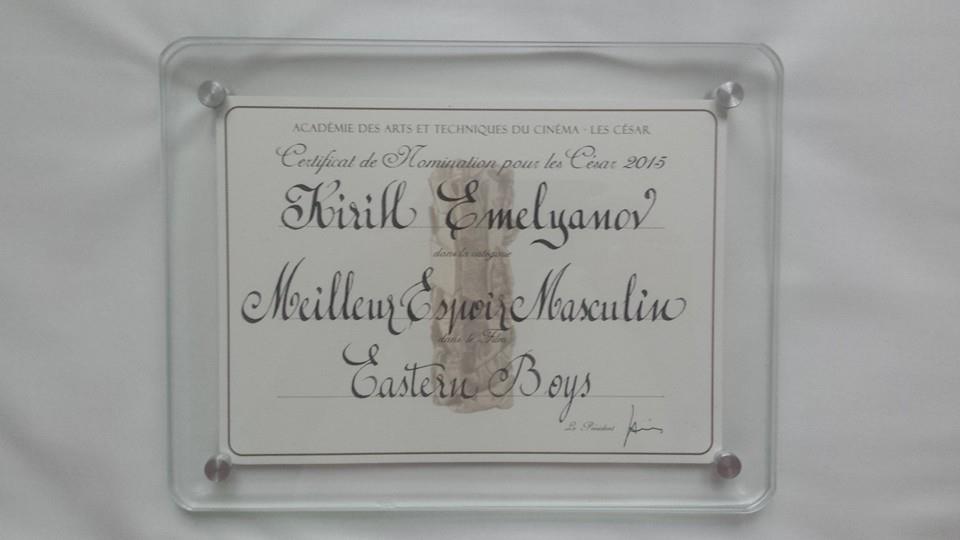 ACADÉMIE DES ARTS ET TECHNIQUES DU CINÉMA · LES CÉSAR
Certificat de Nomination pour les César 2015
Kirill Emelyanov
dans la catégorie
Meilleur Espoir Masculin
dans le Film
Eastern Boys
Le Président